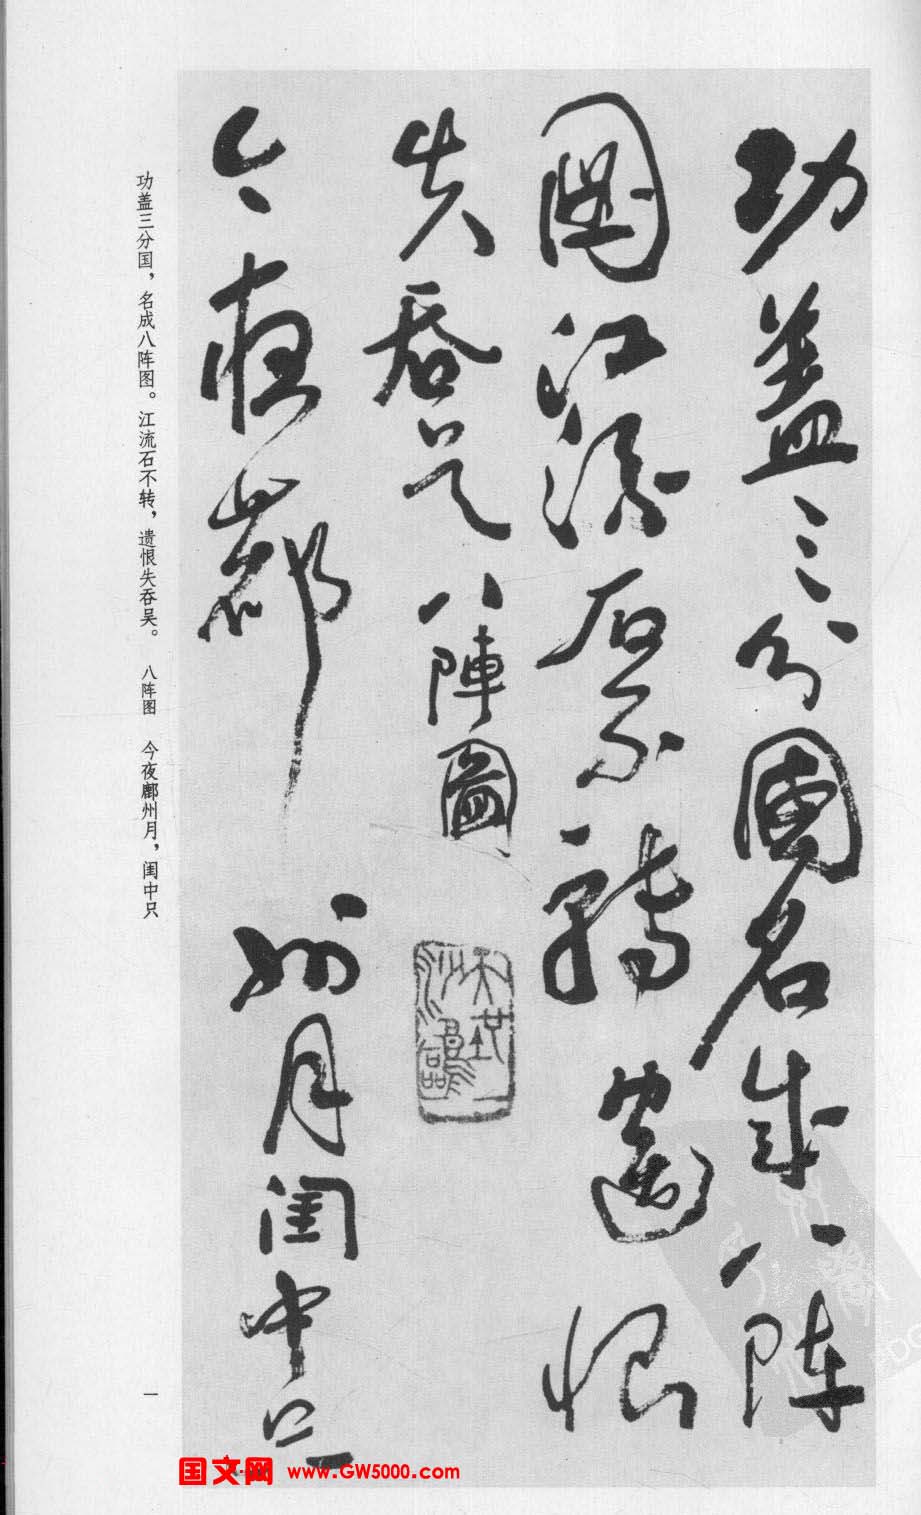 功盖三分國名成八陣
圖江流石不轉遺恨
失吞吴八陣圖
今夜鄜州月閨中只
功盖三分国，名成八阵图。江流石不转，遗恨失吞吴。 八阵图 今夜鄜州月，闺中只
一
国文网 www.GW5000.com